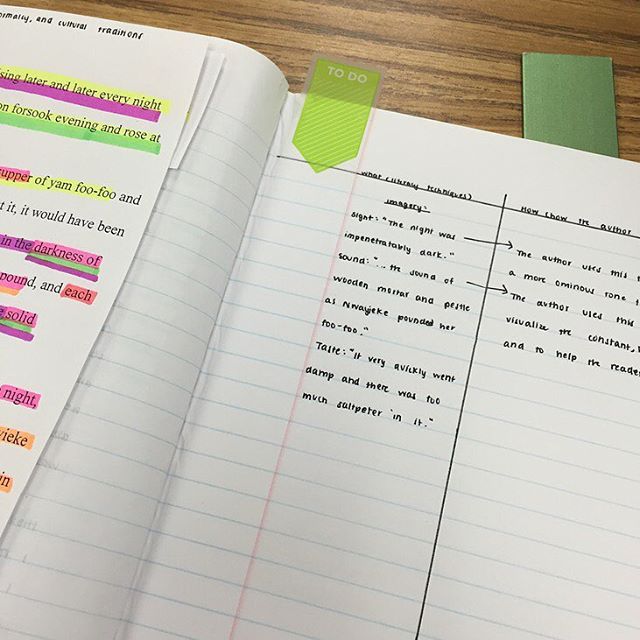 and cultural traditions
sing later and later every night
on forsook evening and rose at
supper of yam foo-foo and
t it, it would have been
in the darkness of
pound, and each
solid
night,
vieke
in
TO DO
what (literary techniques)
imagery:
sight: "The night was
impenetratably dark."
sound: "... the sound of
wooden mortar and pestle
as Nwayieke pounded her
foo-foo."
Taste: "It very quickly went
damp and there was too
much saltpeter in it."
How (how the author
The author used this
a more ominous tone
The author used this
visualize the constant,
and to help the reader